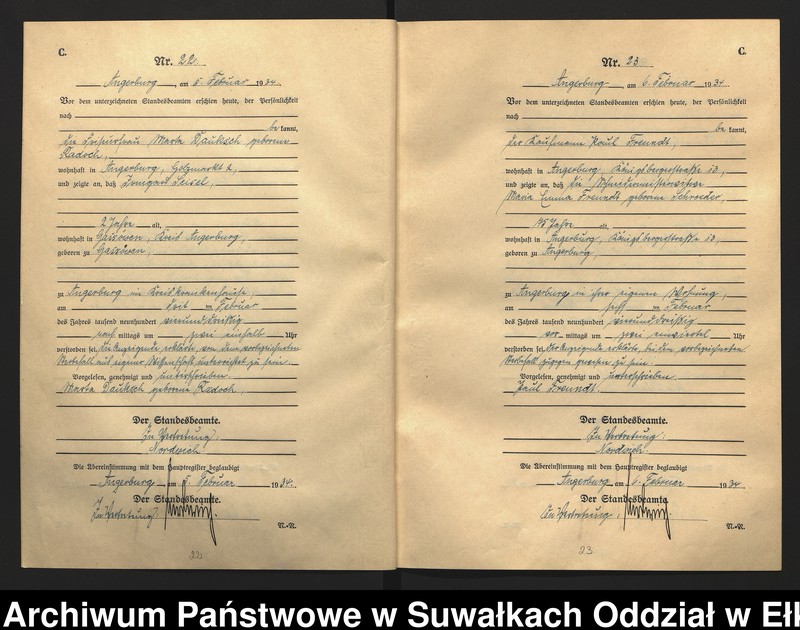 C.
Nr. 22.
Angerburg, am 5. Februar 1934.
Vor dem unterzeichneten Standesbeamten erschien heute, der Persönlichkeit
nach
bekannt,
die Marta Dauksch geborene
Radoch,
wohnhaft in Angerburg, Holzmarkt 2,
und zeigte an, daß Irmgard
2 Jahre alt,
wohnhaft in Kreis Angerburg,
geboren zu
zu Angerburg im Kreiskrankenhause,
am Februar
des Jahres tausend neunhundert vierunddreißig
nachmittags um zwei einhalb Uhr
verstorben sei. Die Anzeigende erklärte, von dem vorbezeichneten
Sterbefall aus eigener Wissenschaft unterrichtet zu sein.
Vorgelesen, genehmigt und unterschrieben
Marta Dauksch geborene Radoch.
Der Standesbeamte.
In Vertretung:
Die Übereinstimmung mit dem Hauptregister beglaubigt
Angerburg, am 5. Februar 1934.
Der Standesbeamte.
In Vertretung:
N.-N.
22
C.
Nr. 23
Angerburg, am 6. Februar 1934.
Vor dem unterzeichneten Standesbeamten erschien heute, der Persönlichkeit
nach
bekannt,
der Kaufmann Paul Freundt,
wohnhaft in Angerburg, Königsbergerstraße 13,
und zeigte an, daß die Schmiedemeisterwitwe
Maria Emma Freundt geborene Schroeder,
Jahre alt,
wohnhaft in Angerburg, Königsbergerstraße 13,
geboren zu Angerburg,
zu Angerburg in ihrer eigenen Wohnung,
am Februar
des Jahres tausend neunhundert vierunddreißig
vormittags um zwei einviertel Uhr
verstorben sei. Der Anzeigende erklärte, bei dem vorbezeichneten
Sterbefall zugegen gewesen zu sein.
Vorgelesen, genehmigt und unterschrieben
Paul Freundt.
Der Standesbeamte.
In Vertretung:
Die Übereinstimmung mit dem Hauptregister beglaubigt
Angerburg, am 6. Februar 1934
Der Standesbeamte.
In Vertretung:
N.-N.
23
Archiwum Państwowe w Suwałkach Oddział w Ełk